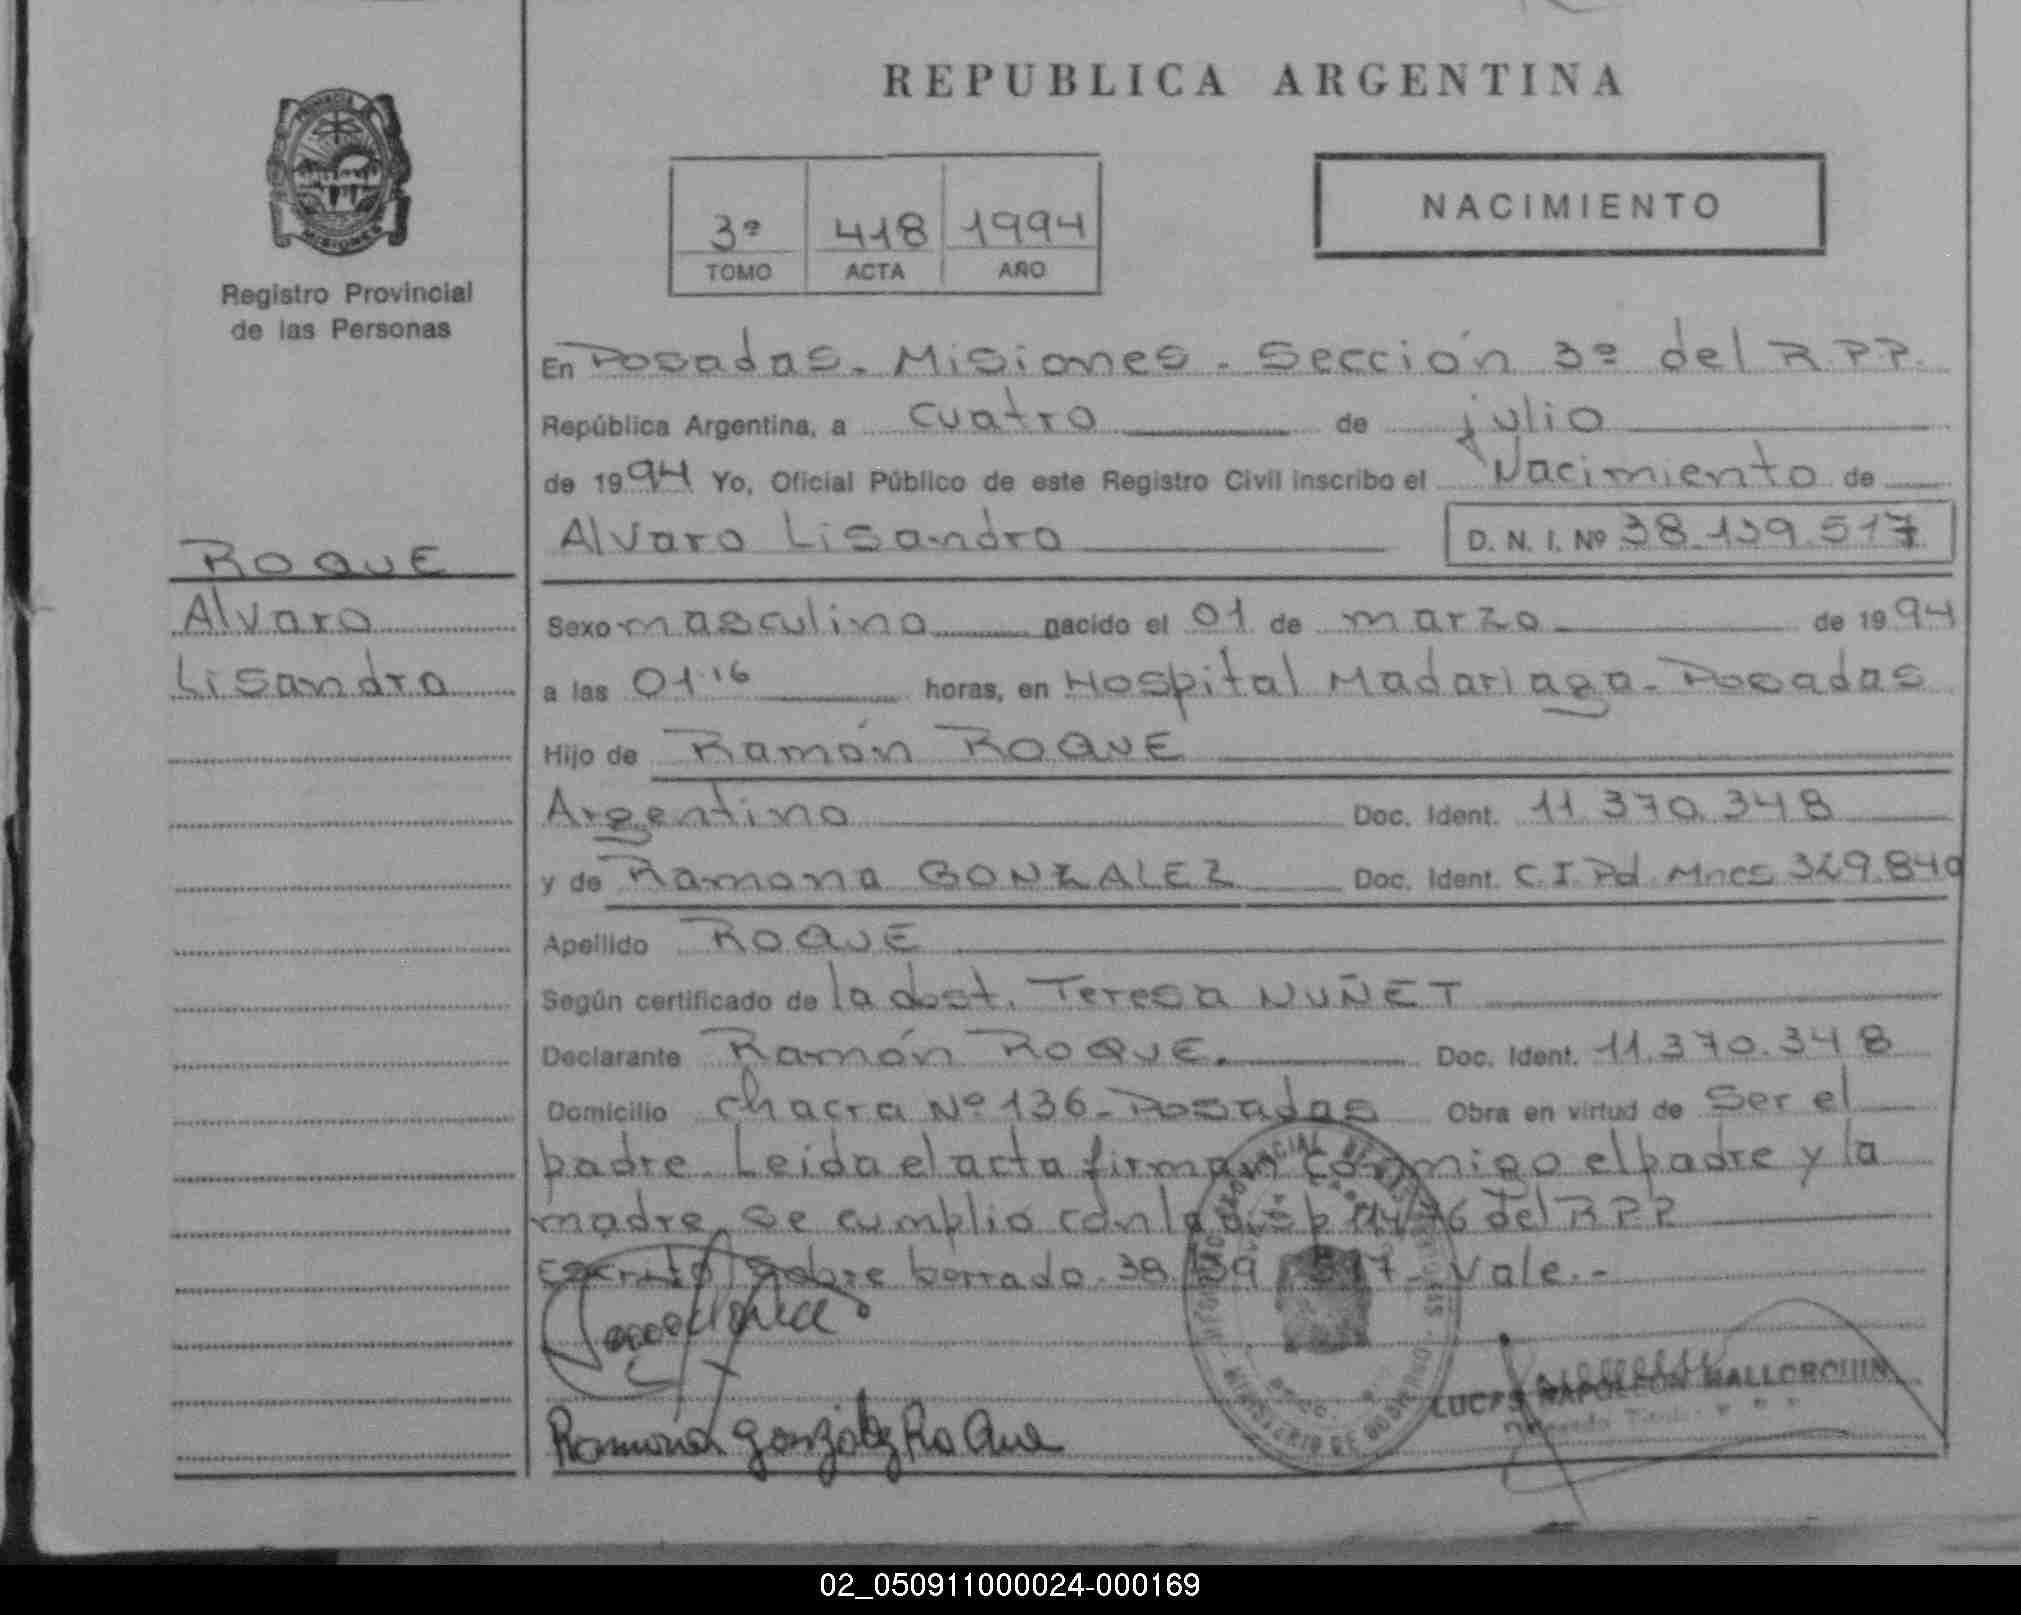 REPUBLICA ARGENTINA
PROVINCIA
MISIONES
Registro Provincial
de las Personas
3ª 418 1994
TOMO ACTA AÑO
NACIMIENTO
En Posadas. Misiones. Sección 3ª del R.P.P.
República Argentina, a cuatro de julio
de 1994 Yo, Oficial Público de este Registro Civil inscribo el Nacimiento de
Alvaro Lisandro D. N. I. Nº 38.139.517
ROQUE
Alvaro
Lisandro
Sexo masculino nacido el 01 de marzo de 1994
a las 01.16 horas, en Hospital Madariaga. Posadas
Hijo de Ramón ROQUE
Argentino Doc. Ident. 11.370.348
y de Ramona GONZALEZ Doc. Ident. C.I.Pd.Mnes 329.840
Apellido ROQUE
Según certificado de la obst. Teresa NUÑET
Declarante Ramón ROQUE. Doc. Ident. 11.370.348
Domicilio chacra Nº 136. Posadas Obra en virtud de Ser el
padre. Leida el acta firman conmigo el padre y la
madre, se cumplió con la disp. del R.P.P.
Escrito sobre borrado. 38.139.517. Vale.-
Ramona gonzalez Roque
LUCAS NAPOLEON MALLORQUIN
MINISTERIO DE GOBIERNO
02_050911000024-000169